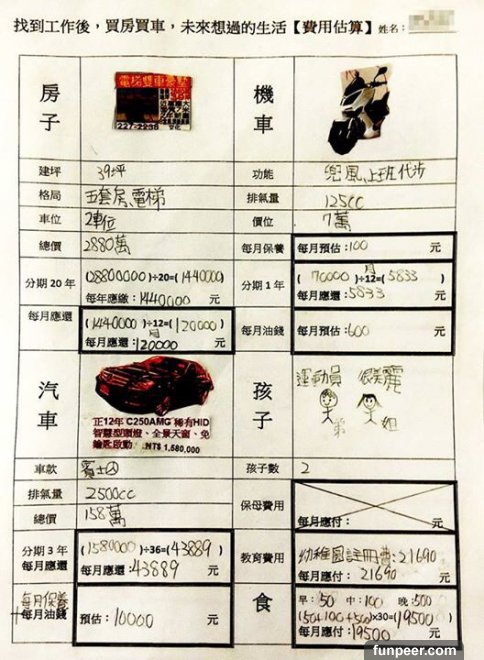 找到工作後，買房買車，未來想過的生活【費用估算】姓名：
房子
電梯雙車豪墅
227-2238
機車
建坪 39坪
功能 兜風、上班代步
格局 五套房、電梯
排氣量 125cc
車位 2車位
價位 7萬
總價 2880萬
每月保養 每月預估：100 元
分期 20 年 (28800000)÷20=(1440000)
每年應繳：1440000 元
分期 1 年 (70000)÷12=(5833)
月
每月應還：5833 元
每月應還 (1440000)÷12=(120000)
月
每月應還：120000 元
每月油錢 每月預估：600 元
汽車
正12年 C250AMG 稀有HID
智慧型頭燈、全景天窗、免
鑰匙啟動 NT$ 1,580,000
孩子
運動員 很美麗
弟 姐
車款 賓士
孩子數 2
排氣量 2500cc
總價 158萬
保母費用 每月應付： 元
分期 3 年
每月應還
(1580000)÷36=(43889)
每月應還：43889 元
教育費用 幼稚園註冊費：21690
每月應付：21690 元
每月保養
+每月油錢
預估：10000 元
食
早：50 中：100 晚：500
(50+100+500)×30=(19500)
每月應付：19500 元
funpeer.com